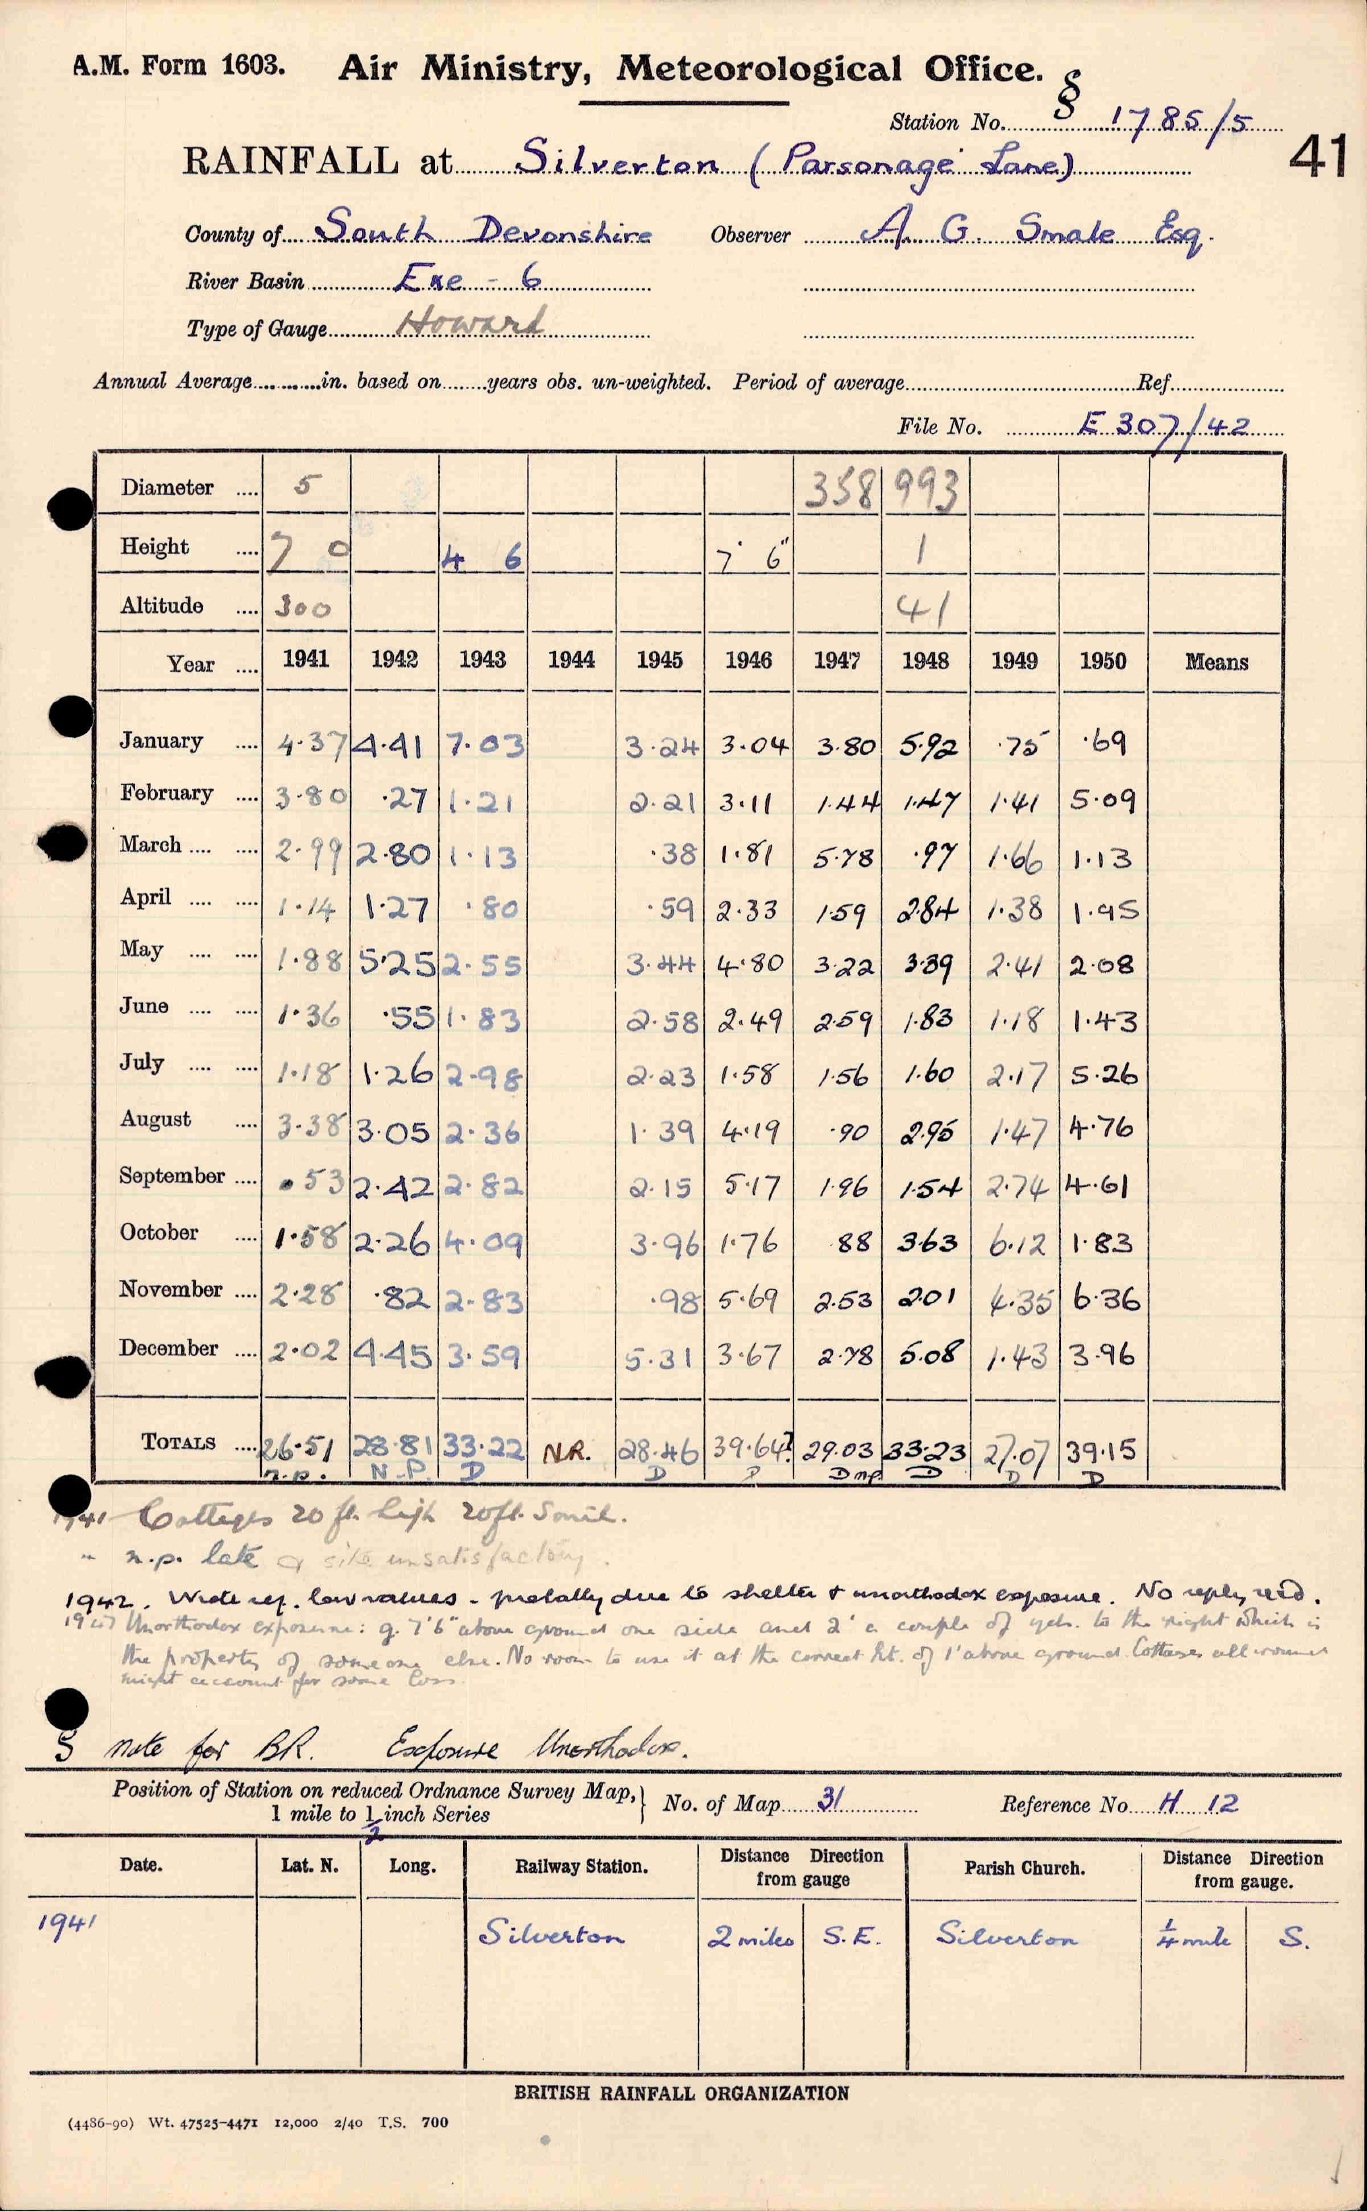 A.M. Form 1603. Air Ministry, Meteorological Office.
§
Station No. 1785/5
41
RAINFALL at Silverton (Parsonage Lane)
County of South Devonshire Observer A. G. Smale Esq.
River Basin Exe - 6
Type of Gauge Howard
Annual Average in. based on years obs. un-weighted. Period of average Ref.
File No. E 307/42
Diameter 5 358 993
Height 7 0 4 6 7' 6" 1
Altitude 300 41
Year 1941 1942 1943 1944 1945 1946 1947 1948 1949 1950 Means
January 4.37 4.41 7.03 3.24 3.04 3.80 5.92 .75 .69
February 3.80 .27 1.21 2.21 3.11 1.44 1.47 1.41 5.09
March 2.99 2.80 1.13 .38 1.81 5.78 .97 1.66 1.13
April 1.14 1.27 .80 .59 2.33 1.59 2.84 1.38 1.95
May 1.88 5.25 2.55 3.44 4.80 3.22 3.39 2.41 2.08
June 1.36 .55 1.83 2.58 2.49 2.59 1.83 1.18 1.43
July 1.18 1.26 2.98 2.23 1.58 1.56 1.60 2.17 5.26
August 3.38 3.05 2.36 1.39 4.19 .90 2.95 1.47 4.76
September .53 2.42 2.82 2.15 5.17 1.96 1.54 2.74 4.61
October 1.58 2.26 4.09 3.96 1.76 .88 3.63 6.12 1.83
November 2.28 .82 2.83 .98 5.69 2.53 2.01 4.35 6.36
December 2.02 4.45 3.59 5.31 3.67 2.78 5.08 1.43 3.96
TOTALS 26.51 28.81 33.22 N.R. 28.46 39.64? 29.03 33.23 27.07 39.15
n.p. N.P. D D D D np. D D D
1941 Cottages 20 ft. high 20ft.
" n.p. late & site unsatisfactory.
1942. Wrote re. low values - probably due to shelter & unorthodox exposure. No reply recd.
1947 Unorthodox exposure: g. 7'6" above ground one side and 2' a couple of yds. to the right which is
the property of someone else. No room to use it at the correct ht. of 1' above ground. Cottages all round
might account for some loss.
§ note for BR. Exposure Unorthodox.
Position of Station on reduced Ordnance Survey Map, No. of Map 31 Reference No. H 12
1 mile to 1/2 inch Series
Date. Lat. N. Long. Railway Station. Distance Direction from gauge Parish Church. Distance Direction from gauge.
1941 Silverton 2 miles S.E. Silverton 1/4 mile S.
BRITISH RAINFALL ORGANIZATION
(4486-90) Wt. 47525-4471 12,000 2/40 T.S. 700